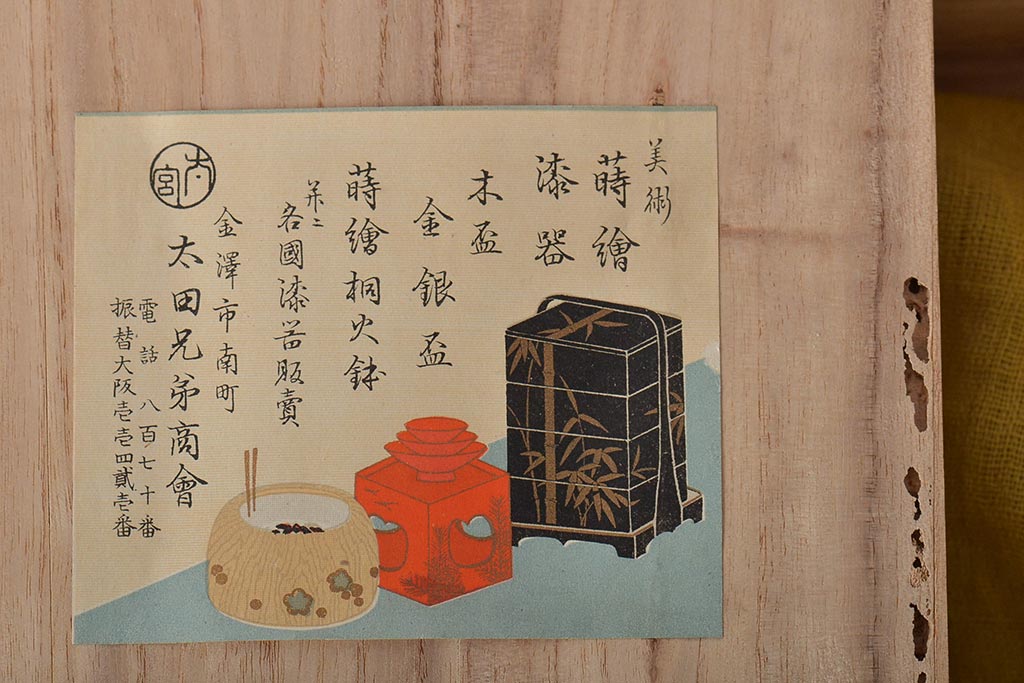 美術
蒔繪
漆器
木盃
金銀盃
蒔繪桐火鉢
並ニ
各國漆器販賣
金澤市南町
太田兄弟商會
電話 八百七十番
振替大阪壱壱四貳壱番